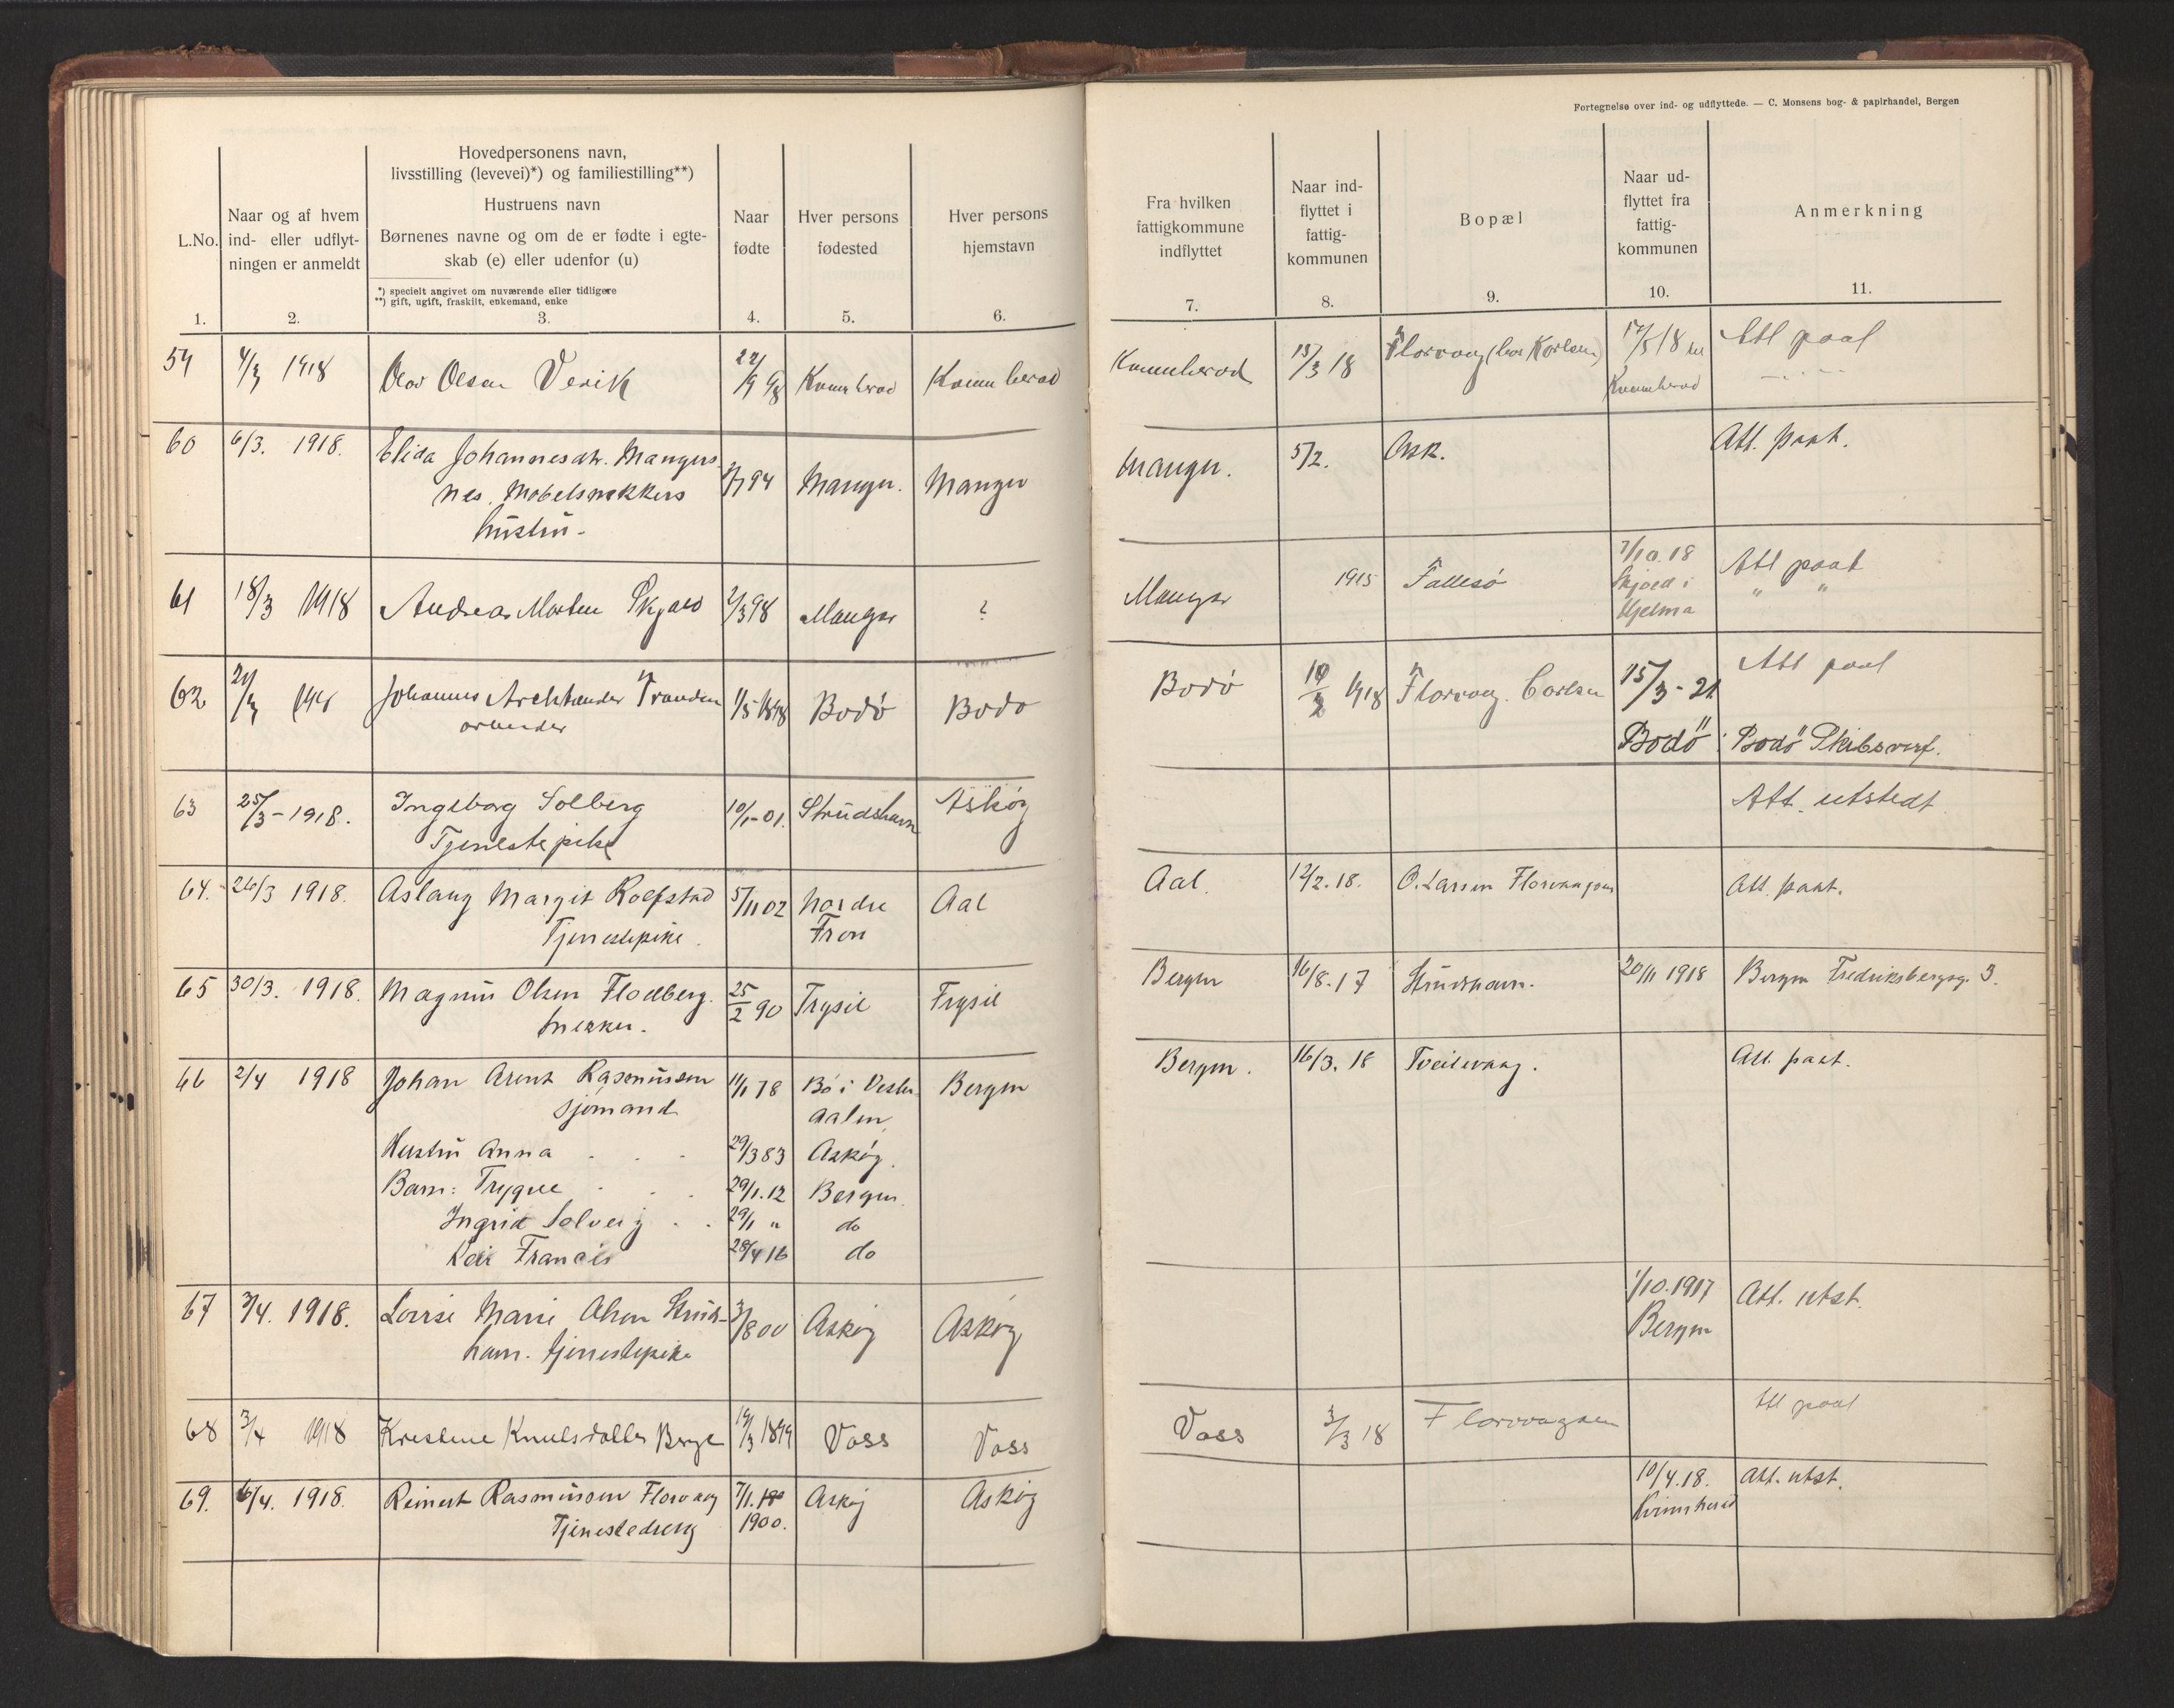 Fortegnelse over ind- og udflyttede. — C. Monsens bog- & papirhandel, Bergen
L.No.
1.
Naar og af hvem
ind- eller udflyt-
ningen er anmeldt
2.
Hovedpersonens navn,
livsstilling (levevei)*) og familiestilling**)
Hustruens navn
Børnenes navne og om de er fødte i egte-
skab (e) eller udenfor (u)
*) specielt angivet om nuværende eller tidligere
**) gift, ugift, fraskilt, enkemand, enke
3.
Naar
fødte
4.
Hver persons
fødested
5.
Hver persons
hjemstavn
6.
Fra hvilken
fattigkommune
indflyttet
7.
Naar ind-
flyttet i
fattig-
kommunen
8.
Bopæl
9.
Naar ud-
flyttet fra
fattig-
kommunen
10.
Anmerkning
11.
59 4/3 1918 Olav Olsen 22/9 98 Kvinnherad Kvinnherad Kvinnherad 15/3 18 Florvaag (hos Karlsen) 17/5 18 til Att paat
Kvinnherad
60 6/3. 1918. Elida Johannesdtr. Mangers- Manger. Manger Manger. 5/2. Ask. Att. paat.
nes. Møbelsnekkers
hustru.
61 18/3 1918 Andreas Morten Skjold 2/3 98 Manger ? Manger 1915 Follesø 7/10.18 Att paat
Skjold i " "
Hjelma
62 Johannes 1/5 1898 Bodø Bodø Bodø 1918 Florvaag. Carlsen 15/3-21 Att paat
arbeider Bodø Bodø Skibsverf.
63 25/3-1918. Ingeborg Solberg 10/1-01. Strudshavn Askøy Att. utstedt
Tjenestepike
64. 26/3 1918. Aslaug Margit Rolfstad 5/11 02 Nordre Aal Aal. 12/2.18. O. Larsen Florvaagøen Att. paat.
Tjenestepike. Fron
65 30/3. 1918. Magnus Olsen Flodberg. 25/2 90 Trysil Trysil Bergen 16/8.17 Strudshavn. 20/11 1918 Bergen Fredriksbergsg. 3.
snekker.
66 2/4 1918 Johan Arent Rasmussen 11/1 78 Bø i Vester- Bergen Bergen. 16/3. 18 Tveitevaag. Att. paat.
sjømand aalen.
Hustru Anna 29/3 83 Askøy.
Barn: Trygve 29/1.12 Bergen.
Ingrid Solveig 29/1 " do
Kai Francis 28/4 16 do
67 3/4. 1918. Lovise Marie Olsen Struds- 3/8 00 Askøy Askøy 1/10.1917 Att. utst.
havn. tjenestepike Bergen
68 3/4 1918 Kristine Knutsdatter Berge Voss Voss Voss 3/3 18 Florvaagøen Att paat
69. 6/4. 1918. Reinert Rasmussen Florvaag 7/1. Askøy Askøy 10/4.18. Att. utst.
Tjenestedreng 1900. Kvinnherad